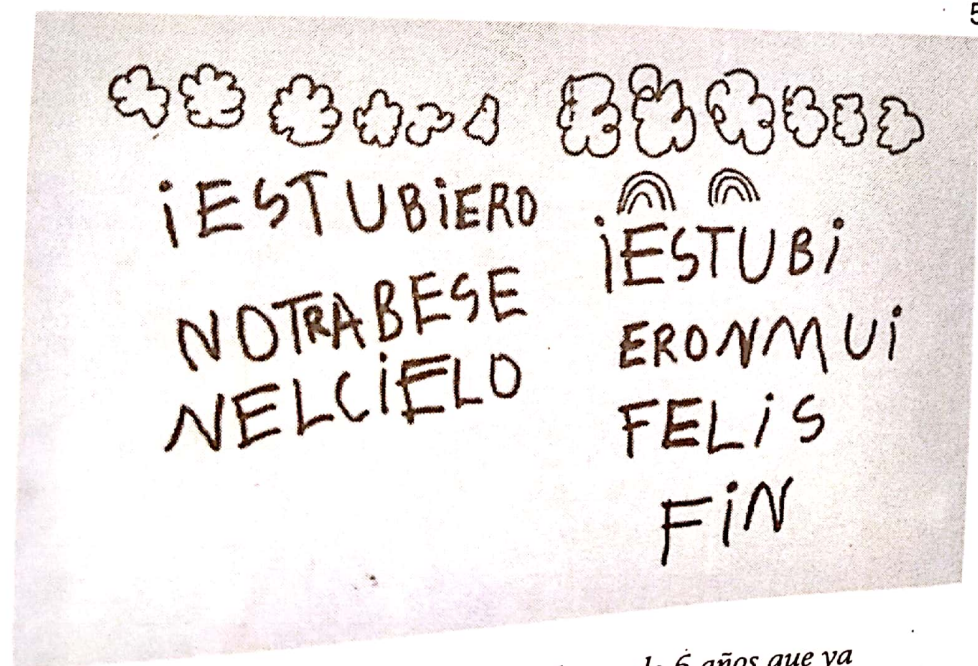 5
iESTUBiERO
NOTRABESE
NELCiELO
iESTUBi
ERONMUi
FELiS
FiN
de 6 años que ya